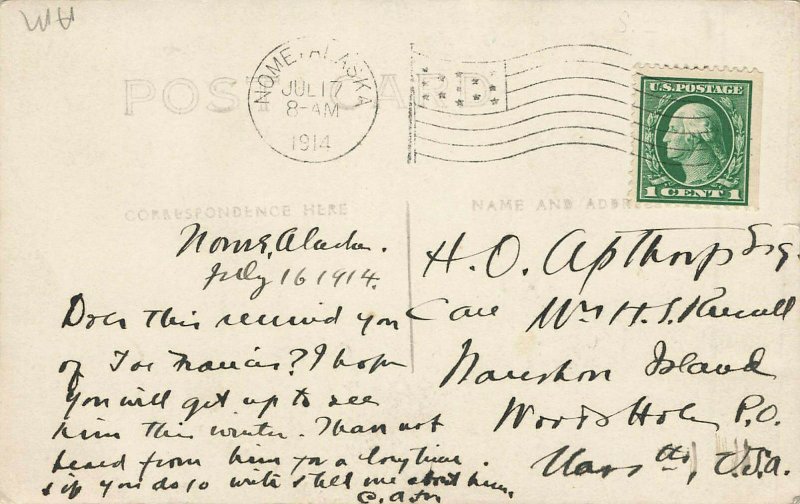 WH
POST CARD
NOME, ALASKA
JUL 17
8-AM
1914
U.S. POSTAGE
1 CENT 1
CORRESPONDENCE HERE
NAME AND ADDRESS
Nome, Alaska.
July 16 1914.
Does this remind you
of Joe Francis? I hope
you will get up to see
him this winter. I have not
heard from him for a long time.
& if you do so write & tell me about him.
H. O. Apthorp Esq.
Care Wm H. S.
Naushon Island
Woods Hole P.O.
Mass., U.S.a.